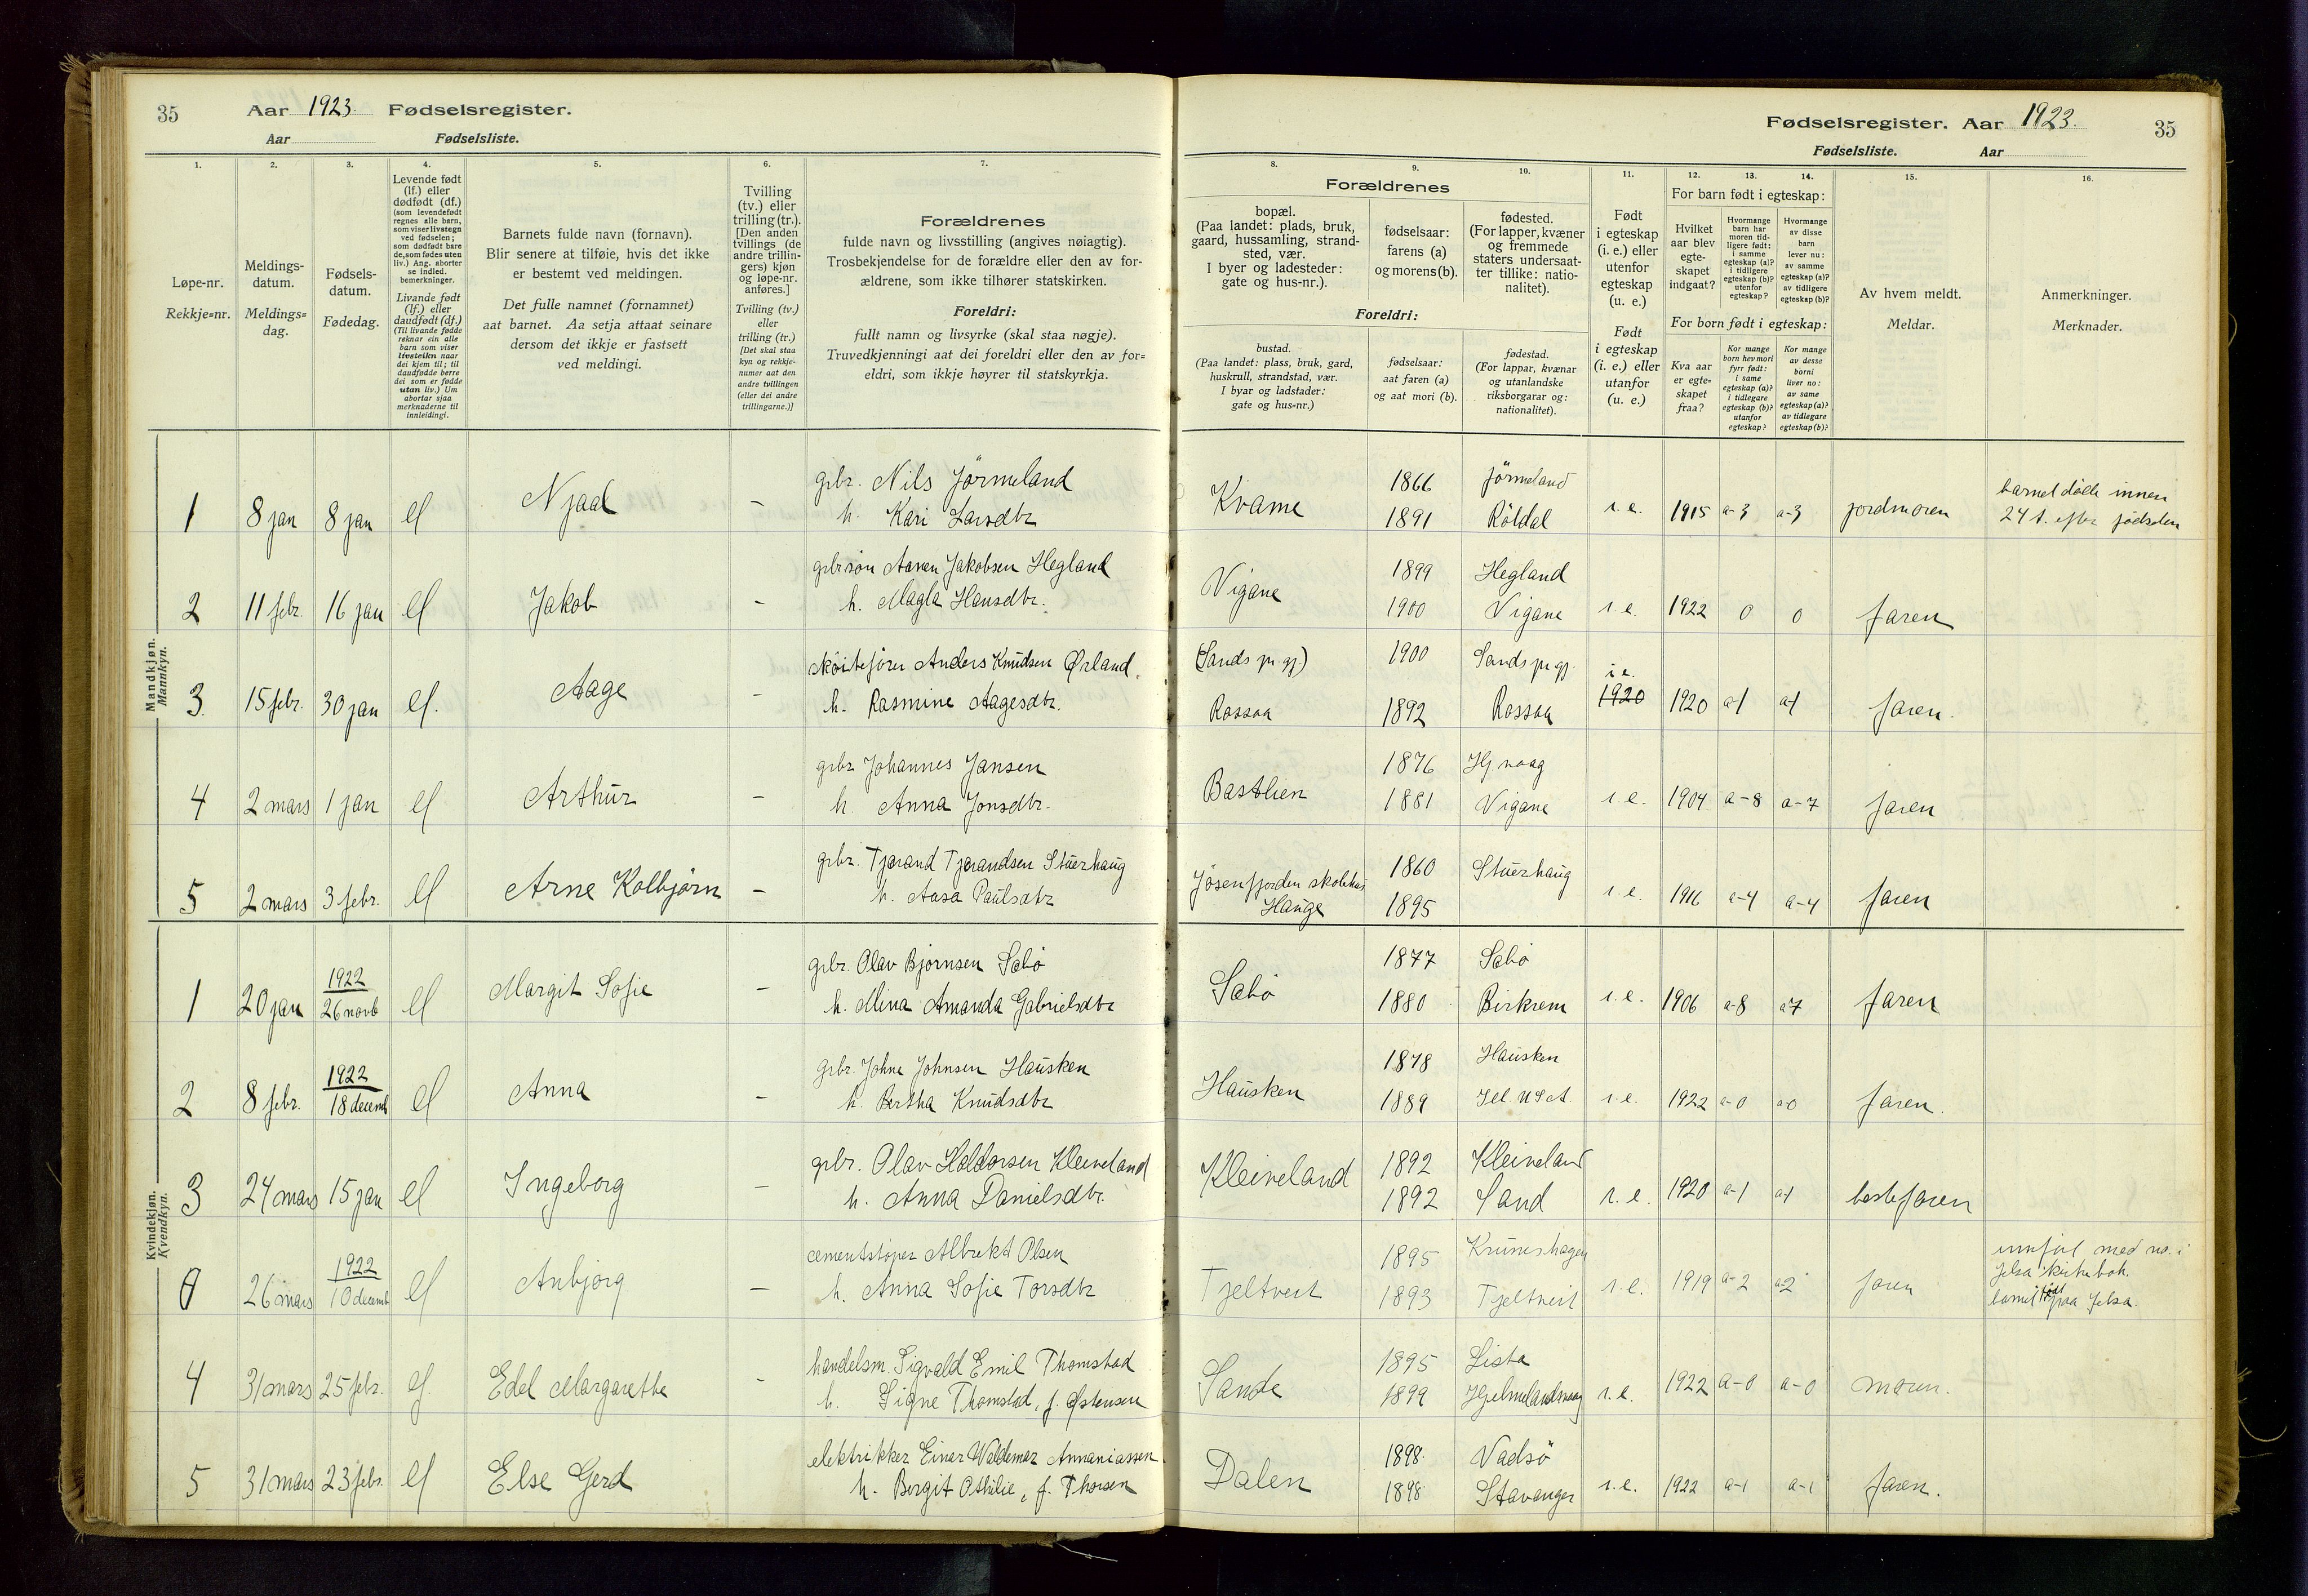 35 Aar 1923. Fødselsregister.
Aar Fødselsliste.
Fødselsregister. Aar 1923. 35
Fødselsliste. Aar
1. 2. 3. 4. 5. 6. 7. 8. 9. 10. 11. 12. 13. 14. 15. 16.
Løpe-nr.
Rekkje=nr.
Meldings-
datum.
Meldings=
dag.
Fødsels-
datum.
Fødedag.
Levende født
(lf.) eller
dødfødt (df.)
(som levendefødt
regnes alle barn,
som viser livstegn
ved fødselen;
som dødfødt bare
de, som fødes uten
liv.) Ang. aborter
se indled.
bemerkninger.
Livande født
(lf.) eller
daudfødt (df.)
(Til livande fødde
reknar ein alle
barn som viser
livsteikn naar
dei kjem til; til
daudfødde berre
dei som er fødde
utan liv.) Um
abortar sjaa
merknaderne til
innleidingi.
Barnets fulde navn (fornavn).
Blir senere at tilføie, hvis det ikke
er bestemt ved meldingen.
Det fulle namnet (fornamnet)
aat barnet. Aa setja attaat seinare
dersom det ikkje er fastsett
ved meldingi.
Tvilling
(tv.) eller
trilling (tr.).
[Den anden
tvillings (de
andre trillin-
gers) kjøn
og løpe-nr.
anføres.]
Tvilling (tv.)
eller
trilling (tr.)
[Det skal staa
kyn og rekkje-
numer aat den
andre tvillingen
(eller dei andre
trillingarne.)]
Forældrenes
fulde navn og livsstilling (angives nøiagtig).
Trosbekjendelse for de forældre eller den av for-
ældrene, som ikke tilhører statskirken.
Foreldri:
fullt namn og livsyrke (skal staa nøgje).
Truvedkjenningi aat dei foreldri eller den av for=
eldri, som ikkje høyrer til statskyrkja.
Forældrenes
bopæl.
(Paa landet: plads, bruk,
gaard, hussamling, strand-
sted, vær.
I byer og ladesteder:
gate og hus-nr.).
fødselsaar:
farens (a)
og morens (b).
fødested.
(For lapper, kvæner
og fremmede
staters undersaat-
ter tillike: natio-
nalitet).
Foreldri:
bustad.
(Paa landet: plass, bruk, gard,
huskrull, strandstad, vær.
I byar og ladstader:
gate og hus=nr.)
fødselsaar:
aat faren (a)
og aat mori (b).
fødestad.
(For lappar, kvænar
og utanlandske
riksborgarar og:
nationalitet).
Født
i egteskap
(i. e.) eller
utenfor
egteskap
(u. e.)
Født
i egteskap
(i. e.) eller
utanfor
(u. e.)
For barn født i egteskap:
Hvilket
aar blev
egte-
skapet
indgaat?
Hvormange
barn har
moren tid-
ligere født:
i samme
egteskap (a)?
i tidligere
egteskap (b)?
utenfor
egteskap?
Hvormange
av disse
barn
lever nu:
av samme
egteskap (a)?
av tidligere
egteskap (b)?
For born født i egteskap:
Kva aar
er egte=
skapet
fraa?
Kor mange
born hev mori
fyrr født:
i same
egteskap (a)?
i tidlegare
egteskap (b)?
utanfor
egteskap?
Kor mange
av desse
borni
liver no:
av same
egteskap (a)?
av tidlegare
egteskap (b)?
Av hvem meldt.
Meldar.
Anmerkninger.
Merknader.
Mandkjøn.
Mannkyn.
1 8 jan 8 jan lf Njaal – grbr. Nils Jörmeland
h. Kari Larsdtr
Kvame 1866 Jörmeland
1891 Röldal i. e. 1915 a-3 a-3 jordmoren barnet döde innen
24 t. efter födselen
2 11 febr. 16 jan lf Jakob – grbr.sön Aanen Jakobsen Hegland
h. Magla Hansdtr.
Vigane 1899 Hegland
1900 Vigane i. e. 1922 0 0 faren
3 15 febr. 30 jan lf. Aage – sköiteförer Anders Knudsen Ørland.
h. Rasmine Aagesdtr.
(Sands pr.gj.) 1900 Sands pr gj.
Rossaa 1892 Rossaa i e. 1920 1920 a-1 a-1 faren.
4 2 mars 1 jan lf Arthur – grbr Johannes Jansen
h. Anna Jonsdtr.
Bastlien 1876 Hj.vaag
1881 Vigane i. e. 1904 a-8 a-7 faren
5 2 mars 3 febr. lf Arne Kolbjørn – grbr. Tjerand Tjerandsen Stuerhaug
h. Aasa Paulsdtr
Jösenfjorden skolehus 1860 Stuerhaug
Hauge 1895 i. e. 1916 a-4 a-4 faren
Kvindekjøn.
Kvendkyn.
1 20 jan 1922
26 novb lf Margit Sofie – grbr. Olav Bjørnsen Sæbø
h. Mina Amanda Gabrielsdtr
Sæbø 1877 Sæbø
1880 Birkrem i. e. 1906 a-8 a7 faren
2 8 febr. 1922
18 decemb lf Anna – grbr. Johne Johnsen Hausken
h. Bertha Knudsdtr
Hausken 1878 Hausken
1889 Ill. U.S.A. i. e. 1922 a-0 a0 faren.
3 24 mars 15 jan lf Ingeborg – grbr. Olav Haldorsen Kleiveland
h. Anna Danielsdtr.
Kleiveland 1892 Kleiveland
1892 Sand i. e. 1920 a-1 a1 bestefaren
0 26 mars 1922
10 decemb lf Anbjørg – cementstøper Albrekt Olsen
h. Anna Sofie Torsdtr
Tjeltveit 1895 Kruneshagen
1893 Tjeltveit i. e. 1919 a-2 a-2 faren innført med no. i
Jelsa kirkebok.
barnet født paa Jelsa.
4 31 mars 25 febr. lf. Edel Margarethe – handelsm. Sigvald Emil Thomstad
h. Signe Thomstad, f. Østensen
Sande 1895 Lista
1899 Hjelmelandsvaag i. e. 1922 a-0 a-0 moren.
5 31 mars 23 febr. lf Else Gerd elektrikker Einar Waldemar Annaniassen
h. Borgit Othilie, f. Thorsen
Dalen 1898 Vadsö
1898 Stavanger i. e. 1922 a-1 a-1 faren.